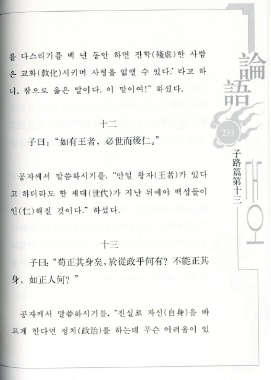 를 다스리기를 백 년 동안 하면 잔학(殘虐)한 사람
은 교화(敎化)시키며 사형을 없앨 수 있다.’ 라고 하
니, 참으로 옳은 말이다. 이 말이여!” 하셨다.
十二
子曰: “如有王者, 必世而後仁.”
공자께서 말씀하시기를, “만일 왕자(王者)가 있다
고 하더라도 한 세대(世代)가 지난 뒤에야 백성들이
인(仁)해질 것이다.” 하셨다.
十三
子曰: “苟正其身矣, 於從政乎何有? 不能正其
身, 如正人何?”
공자께서 말씀하시기를, “진실로 자신(自身)을 바
르게 한다면 정치(政治)를 하는데 무슨 어려움이 있
論語
211
子路篇第十三